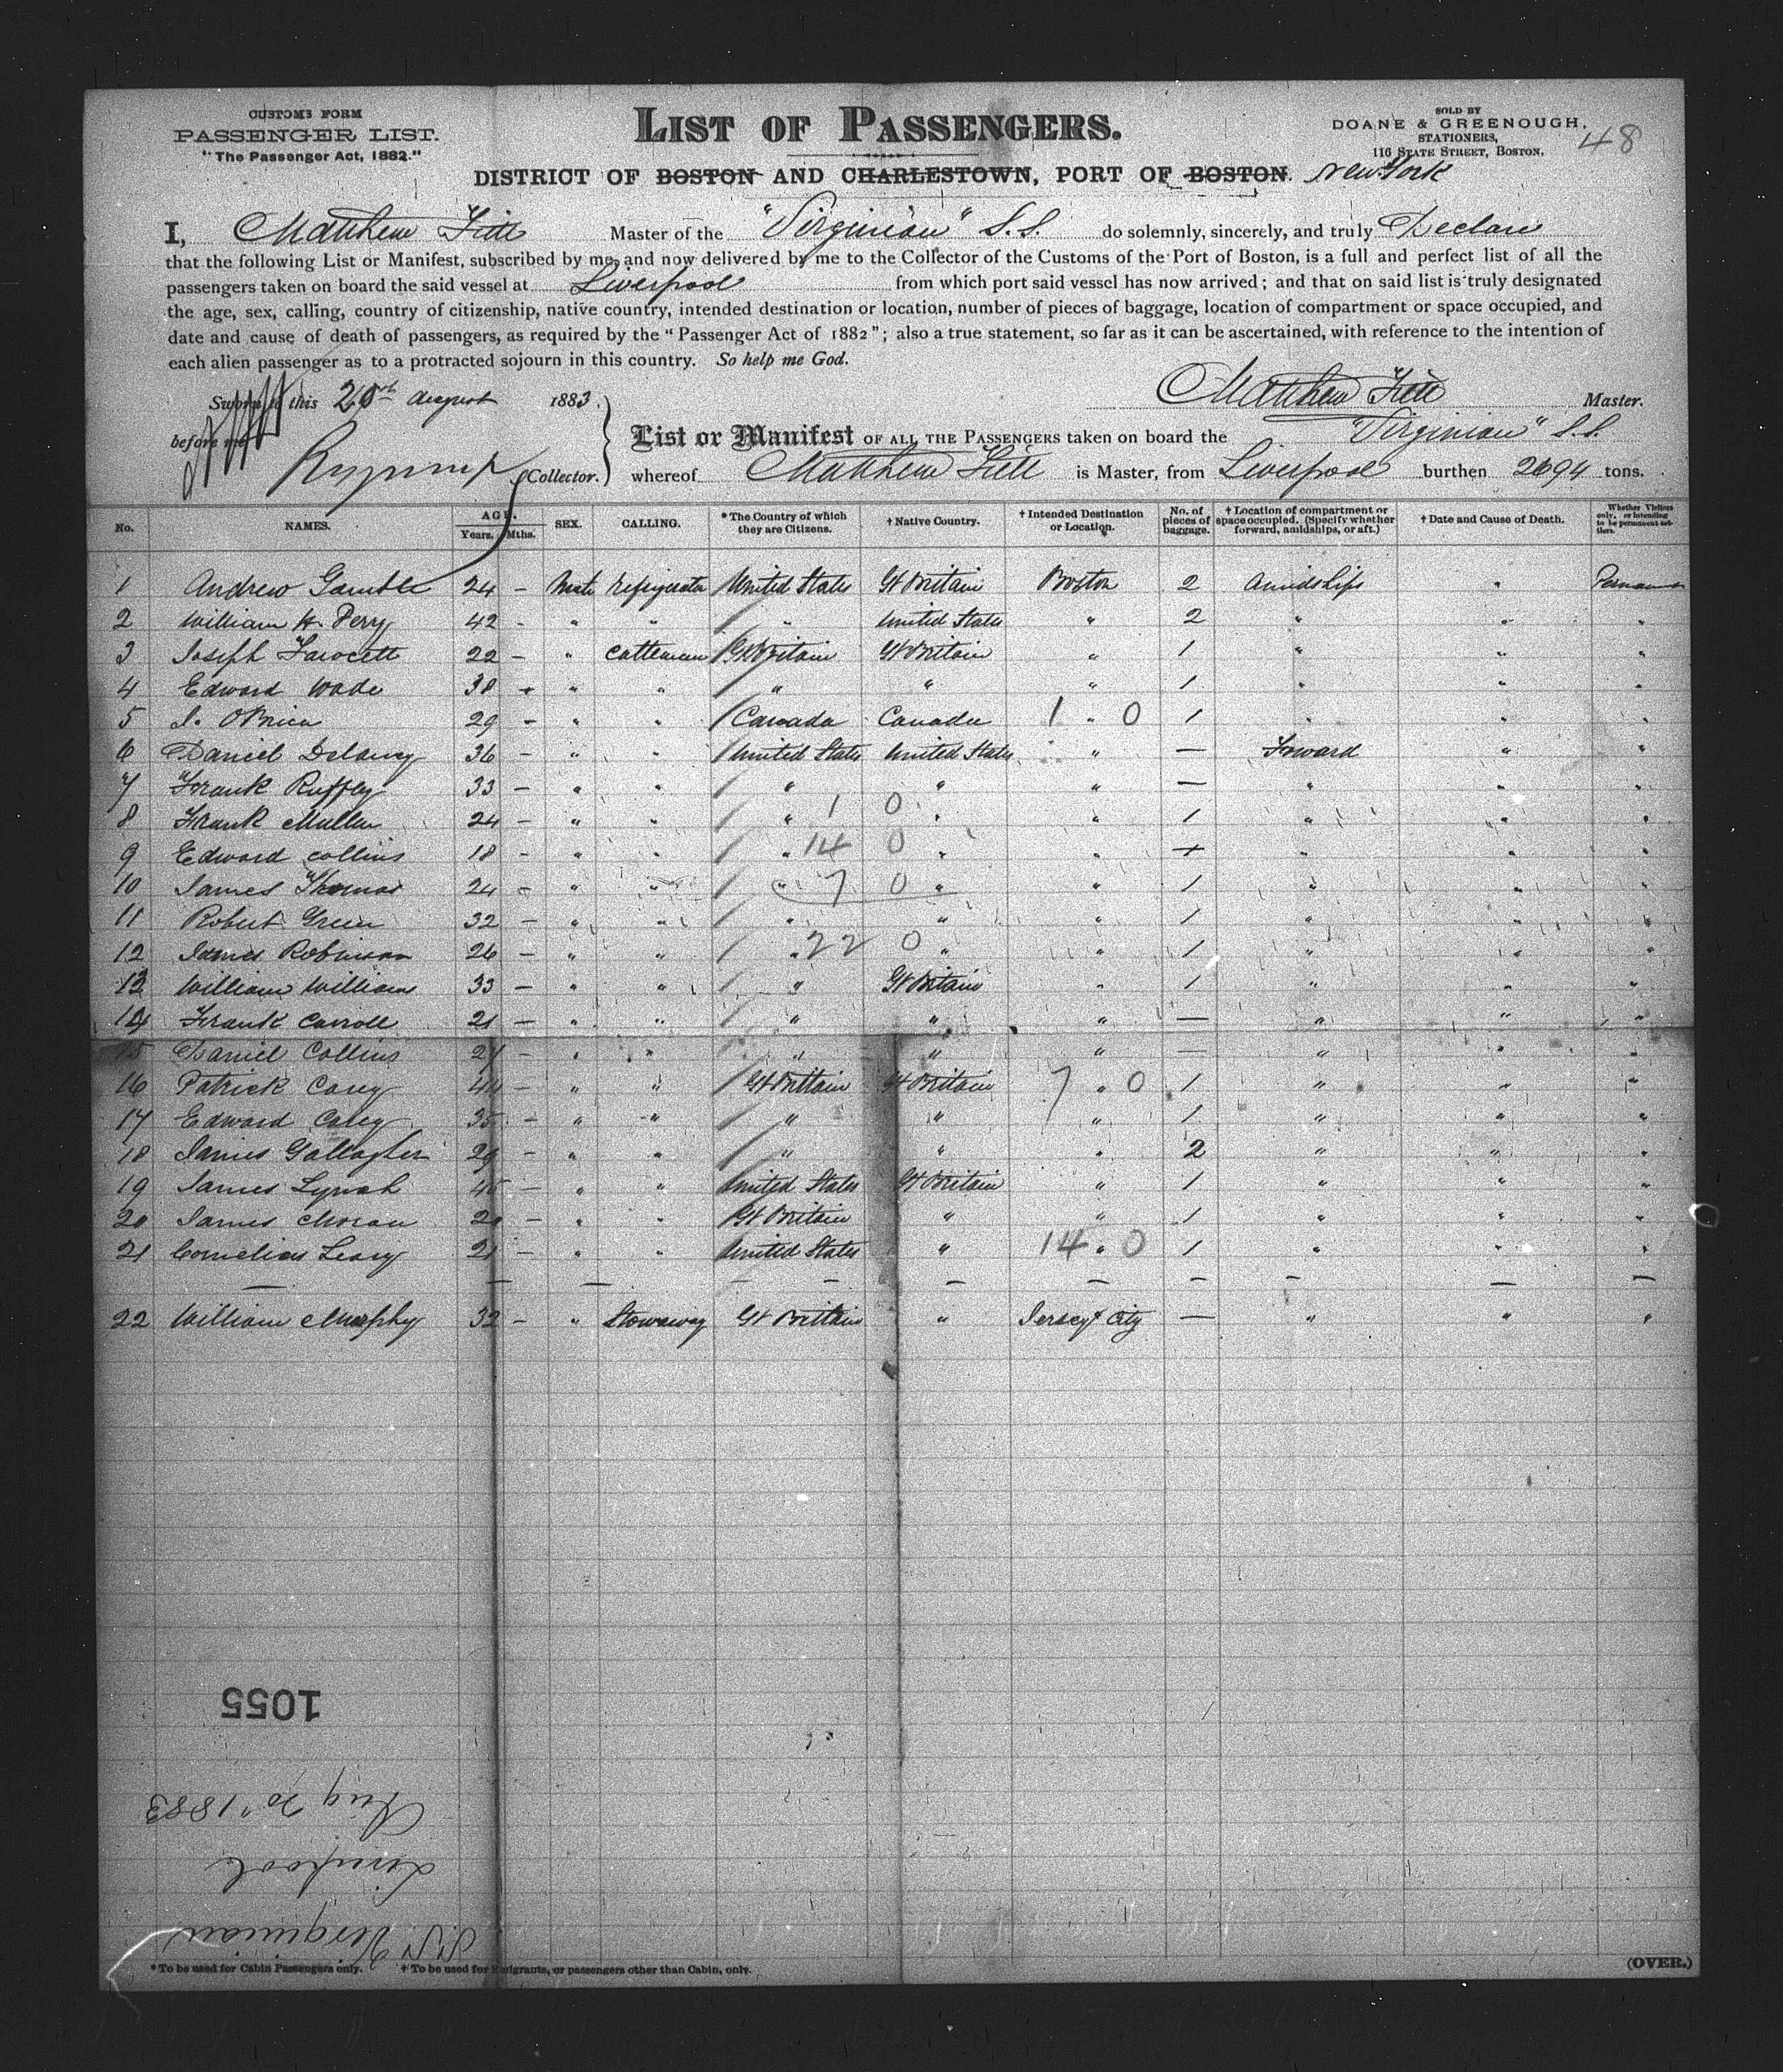 CUSTOMS FORM
PASSENGER LIST.
"The Passenger Act, 1882."
LIST OF PASSENGERS.
SOLD BY
DOANE & GREENOUGH,
STATIONERS,
116 STATE STREET, BOSTON.
48
DISTRICT OF BOSTON AND CHARLESTOWN, PORT OF BOSTON. New York
I, Matthew Fitt Master of the "Virginian" S.S. do solemnly, sincerely, and truly Declare
that the following List or Manifest, subscribed by me, and now delivered by me to the Collector of the Customs of the Port of Boston, is a full and perfect list of all the
passengers taken on board the said vessel at Liverpool from which port said vessel has now arrived; and that on said list is truly designated
the age, sex, calling, country of citizenship, native country, intended destination or location, number of pieces of baggage, location of compartment or space occupied, and
date and cause of death of passengers, as required by the "Passenger Act of 1882"; also a true statement, so far as it can be ascertained, with reference to the intention of
each alien passenger as to a protracted sojourn in this country. So help me God.
Sworn to this 20th August 1883.
Matthew Fitt Master.
before me
Collector.
List or Manifest OF ALL THE PASSENGERS taken on board the "Virginian" S.S.
whereof Matthew Fitt is Master, from Liverpool burthen 2694 tons.
No. NAMES. AGE. Years. Mths. SEX. CALLING. *The Country of which they are Citizens. †Native Country. †Intended Destination or Location. No. of pieces of baggage. †Location of compartment or space occupied. (Specify whether forward, amidships, or aft.) †Date and Cause of Death. Whether Visitors only, or intending to be permanent settlers.
1 Andrew Gamble 24 – Male refrigerator United States Gt Britain Boston 2 Amidships "
2 William H. Perry 42 - " " " United States " 2 " " "
3 Joseph Fawcett 22 – " Cattleman Gt Britain Gt Britain " 1 " " "
4 Edward Wade 38 - " " " " " 1 " " "
5 J. OBrien 29 – " " Canada Canada 1 " 0 1 " " "
6 Daniel Delaney 36 - " " United States United States " — Forward " "
7 Frank Ruffley 33 – " " " " " — " " "
8 Frank Mullen 24 – " " " 1 0 " " 1 " " "
9 Edward Collins 18 - " " " 14 0 " " — " " "
10 James Thomas 24 – " " " 7 0 " " 1 " " "
11 Robert Green 32 – " " " " " 1 " " "
12 James Robinson 26 – " " " 22 0 " " 1 " " "
13 William Williams 33 – " " " Gt Britain " 1 " " "
14 Frank Carroll 21 – " " " " " — " " "
15 Daniel Collins 27 – " " " " " — " " "
16 Patrick Carey 44 – " " Gt Brittain Gt Britain 7 " 0 1 " " "
17 Edward Caley 35 - " " " " " 1 " " "
18 James Gallagher 29 – " " " " " 2 " " "
19 James Lynch 45 – " " United States Gt Britain " 1 " " "
20 James Moran 20 – " " Gt Britain " " 1 " " "
21 Cornelius Leary 21 – " " United States " 14 " 0 1 " " "
22 William Murphy 32 – " Stowaway Gt Brittain " Jersey City — " " "
1055
Aug 20" 1883
Liverpool
S.S. Virginian
*To be used for Cabin Passengers only. †To be used for Emigrants, or passengers other than Cabin, only.
(OVER.)